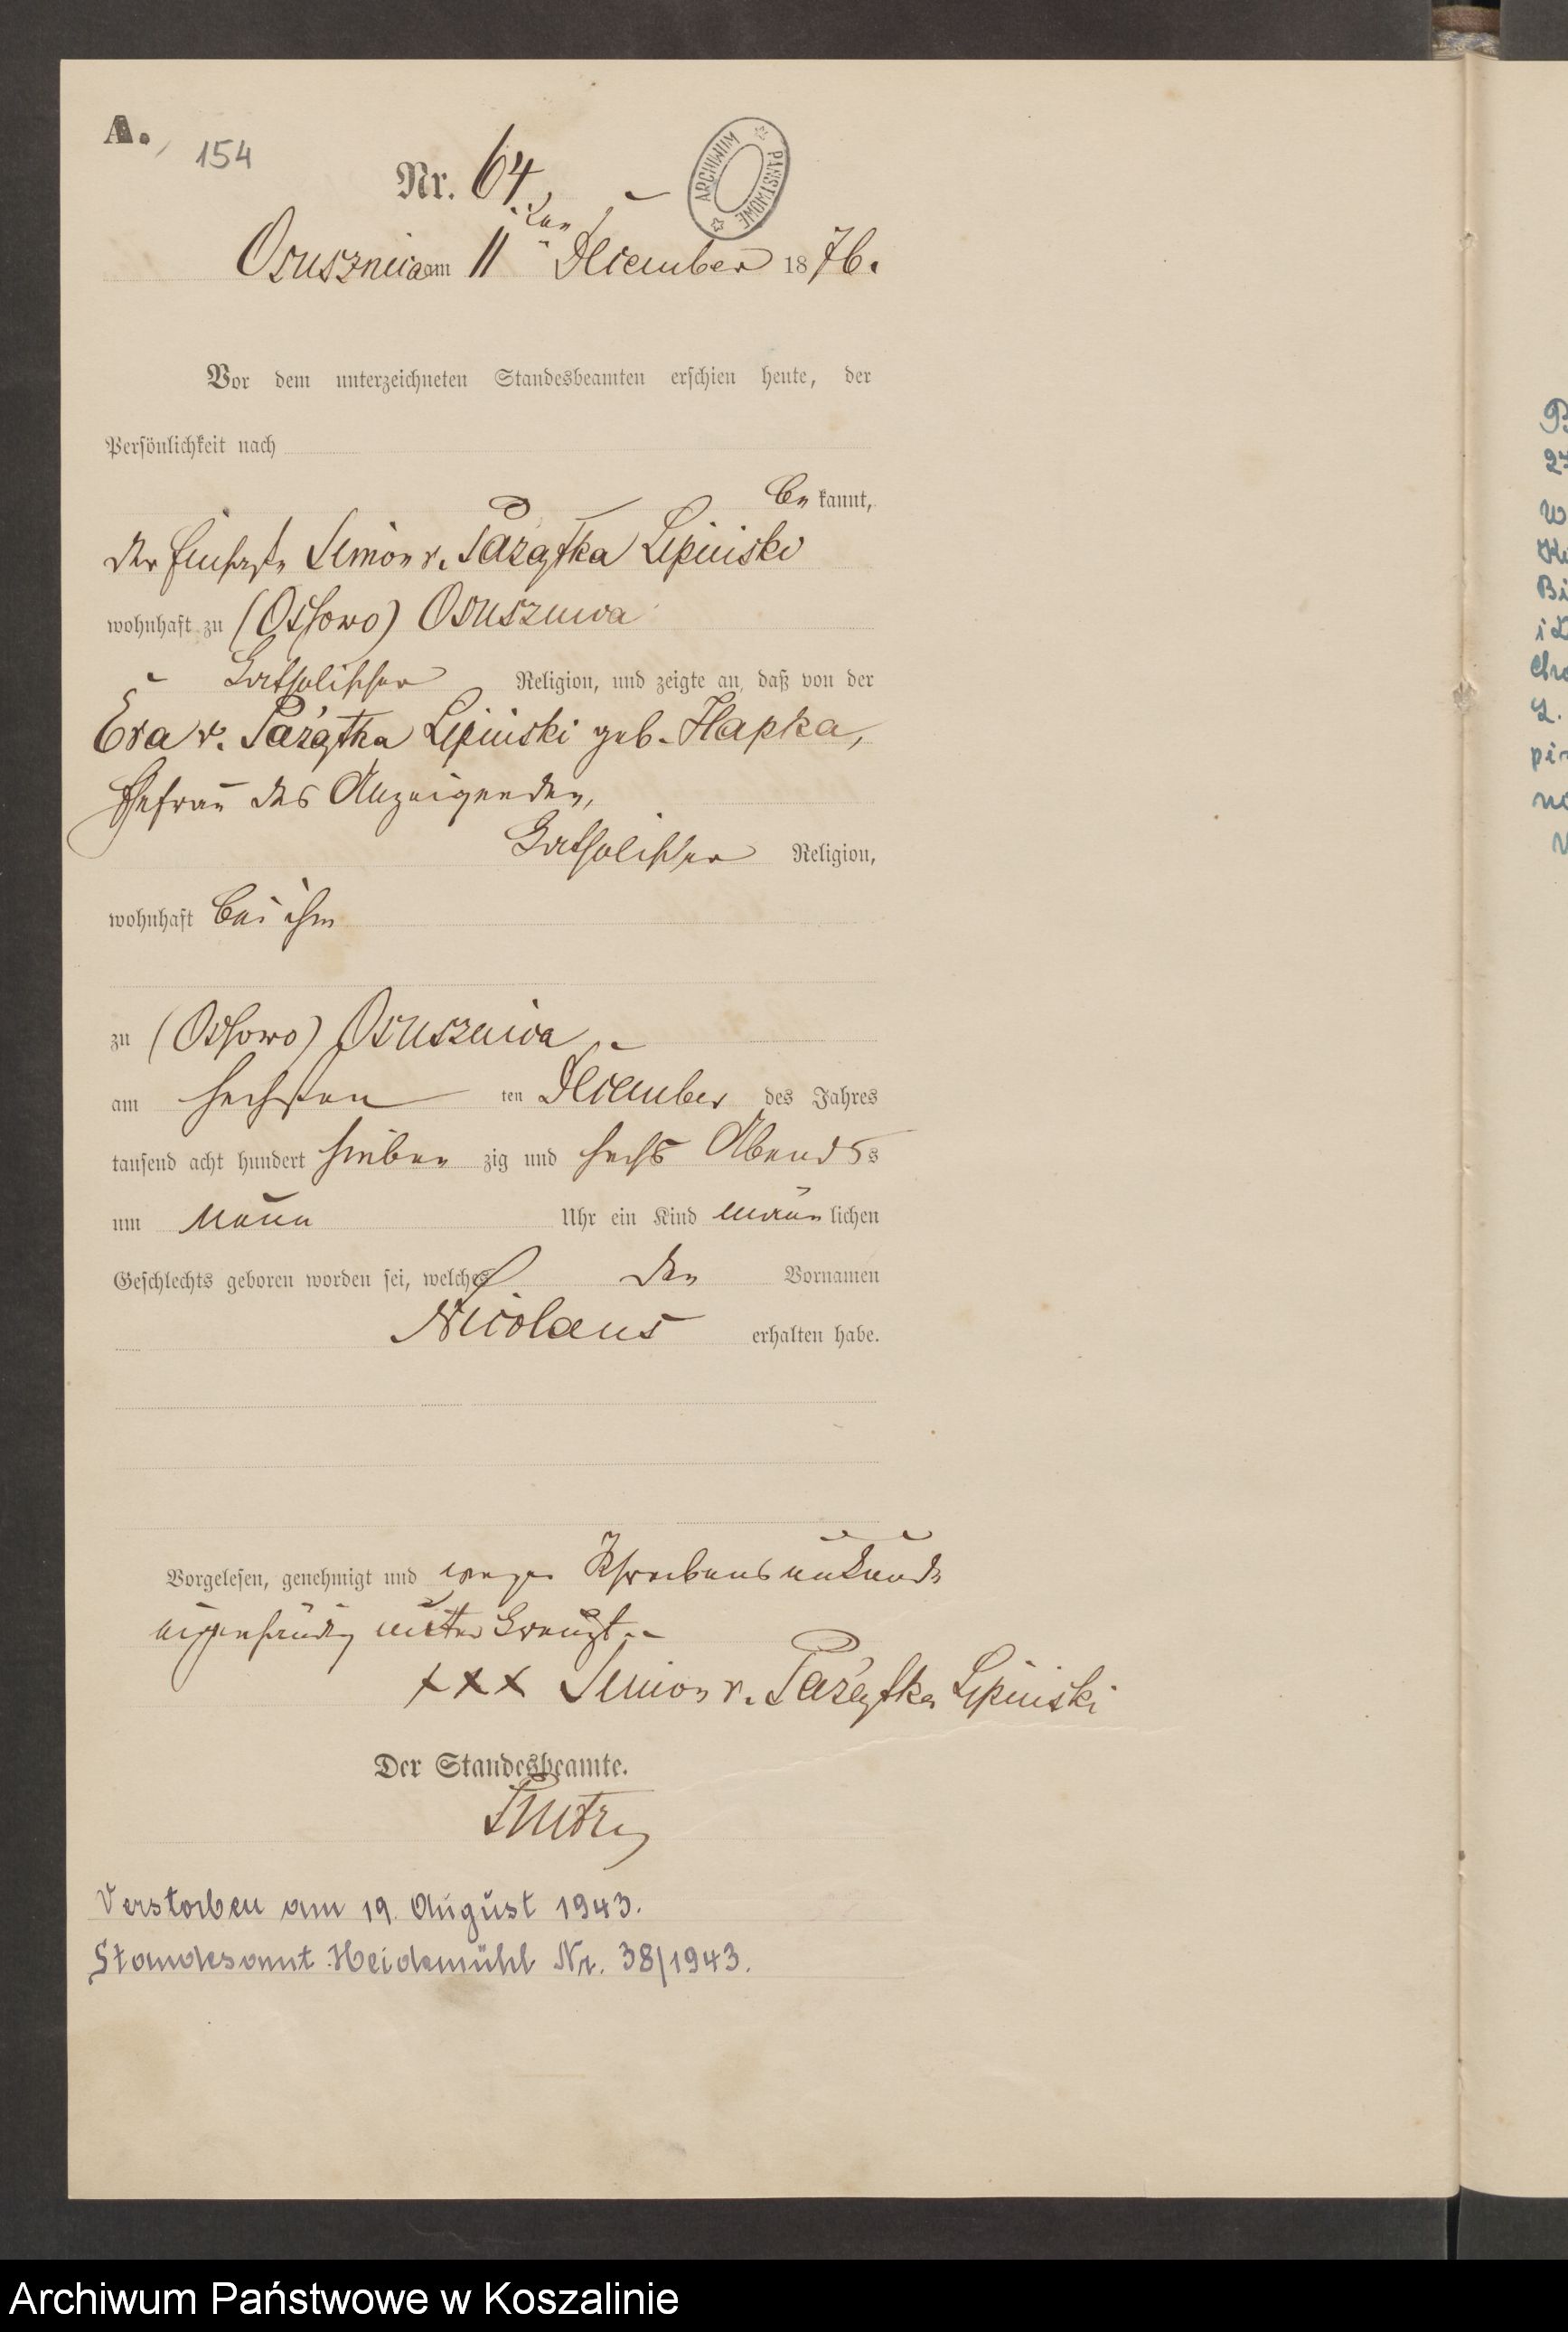 A.
154
Nr. 64.
ARCHIWUM PAŃSTWOWE
Osusznica am 11ten December 1876.
Vor dem unterzeichneten Standesbeamten erschien heute, der
Persönlichkeit nach
be kannt,
der Simon v. Pażątka Lipinski
wohnhaft zu (Ossowo) Osusznica
katholischer Religion, und zeigte an, daß von der
Eva v. Pażątka Lipinski geb. Hapka,
Ehefrau des Anzeigenden,
katholischer Religion,
wohnhaft bei ihm
zu (Ossowo) Osusznica
am sechsten ten December des Jahres
tausend acht hundert sieben zig und sechs Abends s
um neun Uhr ein Kind männ lichen
Geschlechts geboren worden sei, welches den Vornamen
Nicolaus erhalten habe.
Vorgelesen, genehmigt und wegen Schreibensunkunde
eigenhändig unterkreuzt.
xxx Simon v. Pażątka Lipinski
Der Standesbeamte.
Verstorben am 19. August 1943.
Standesamt Heidemühl Nr. 38/1943.
Archiwum Państwowe w Koszalinie